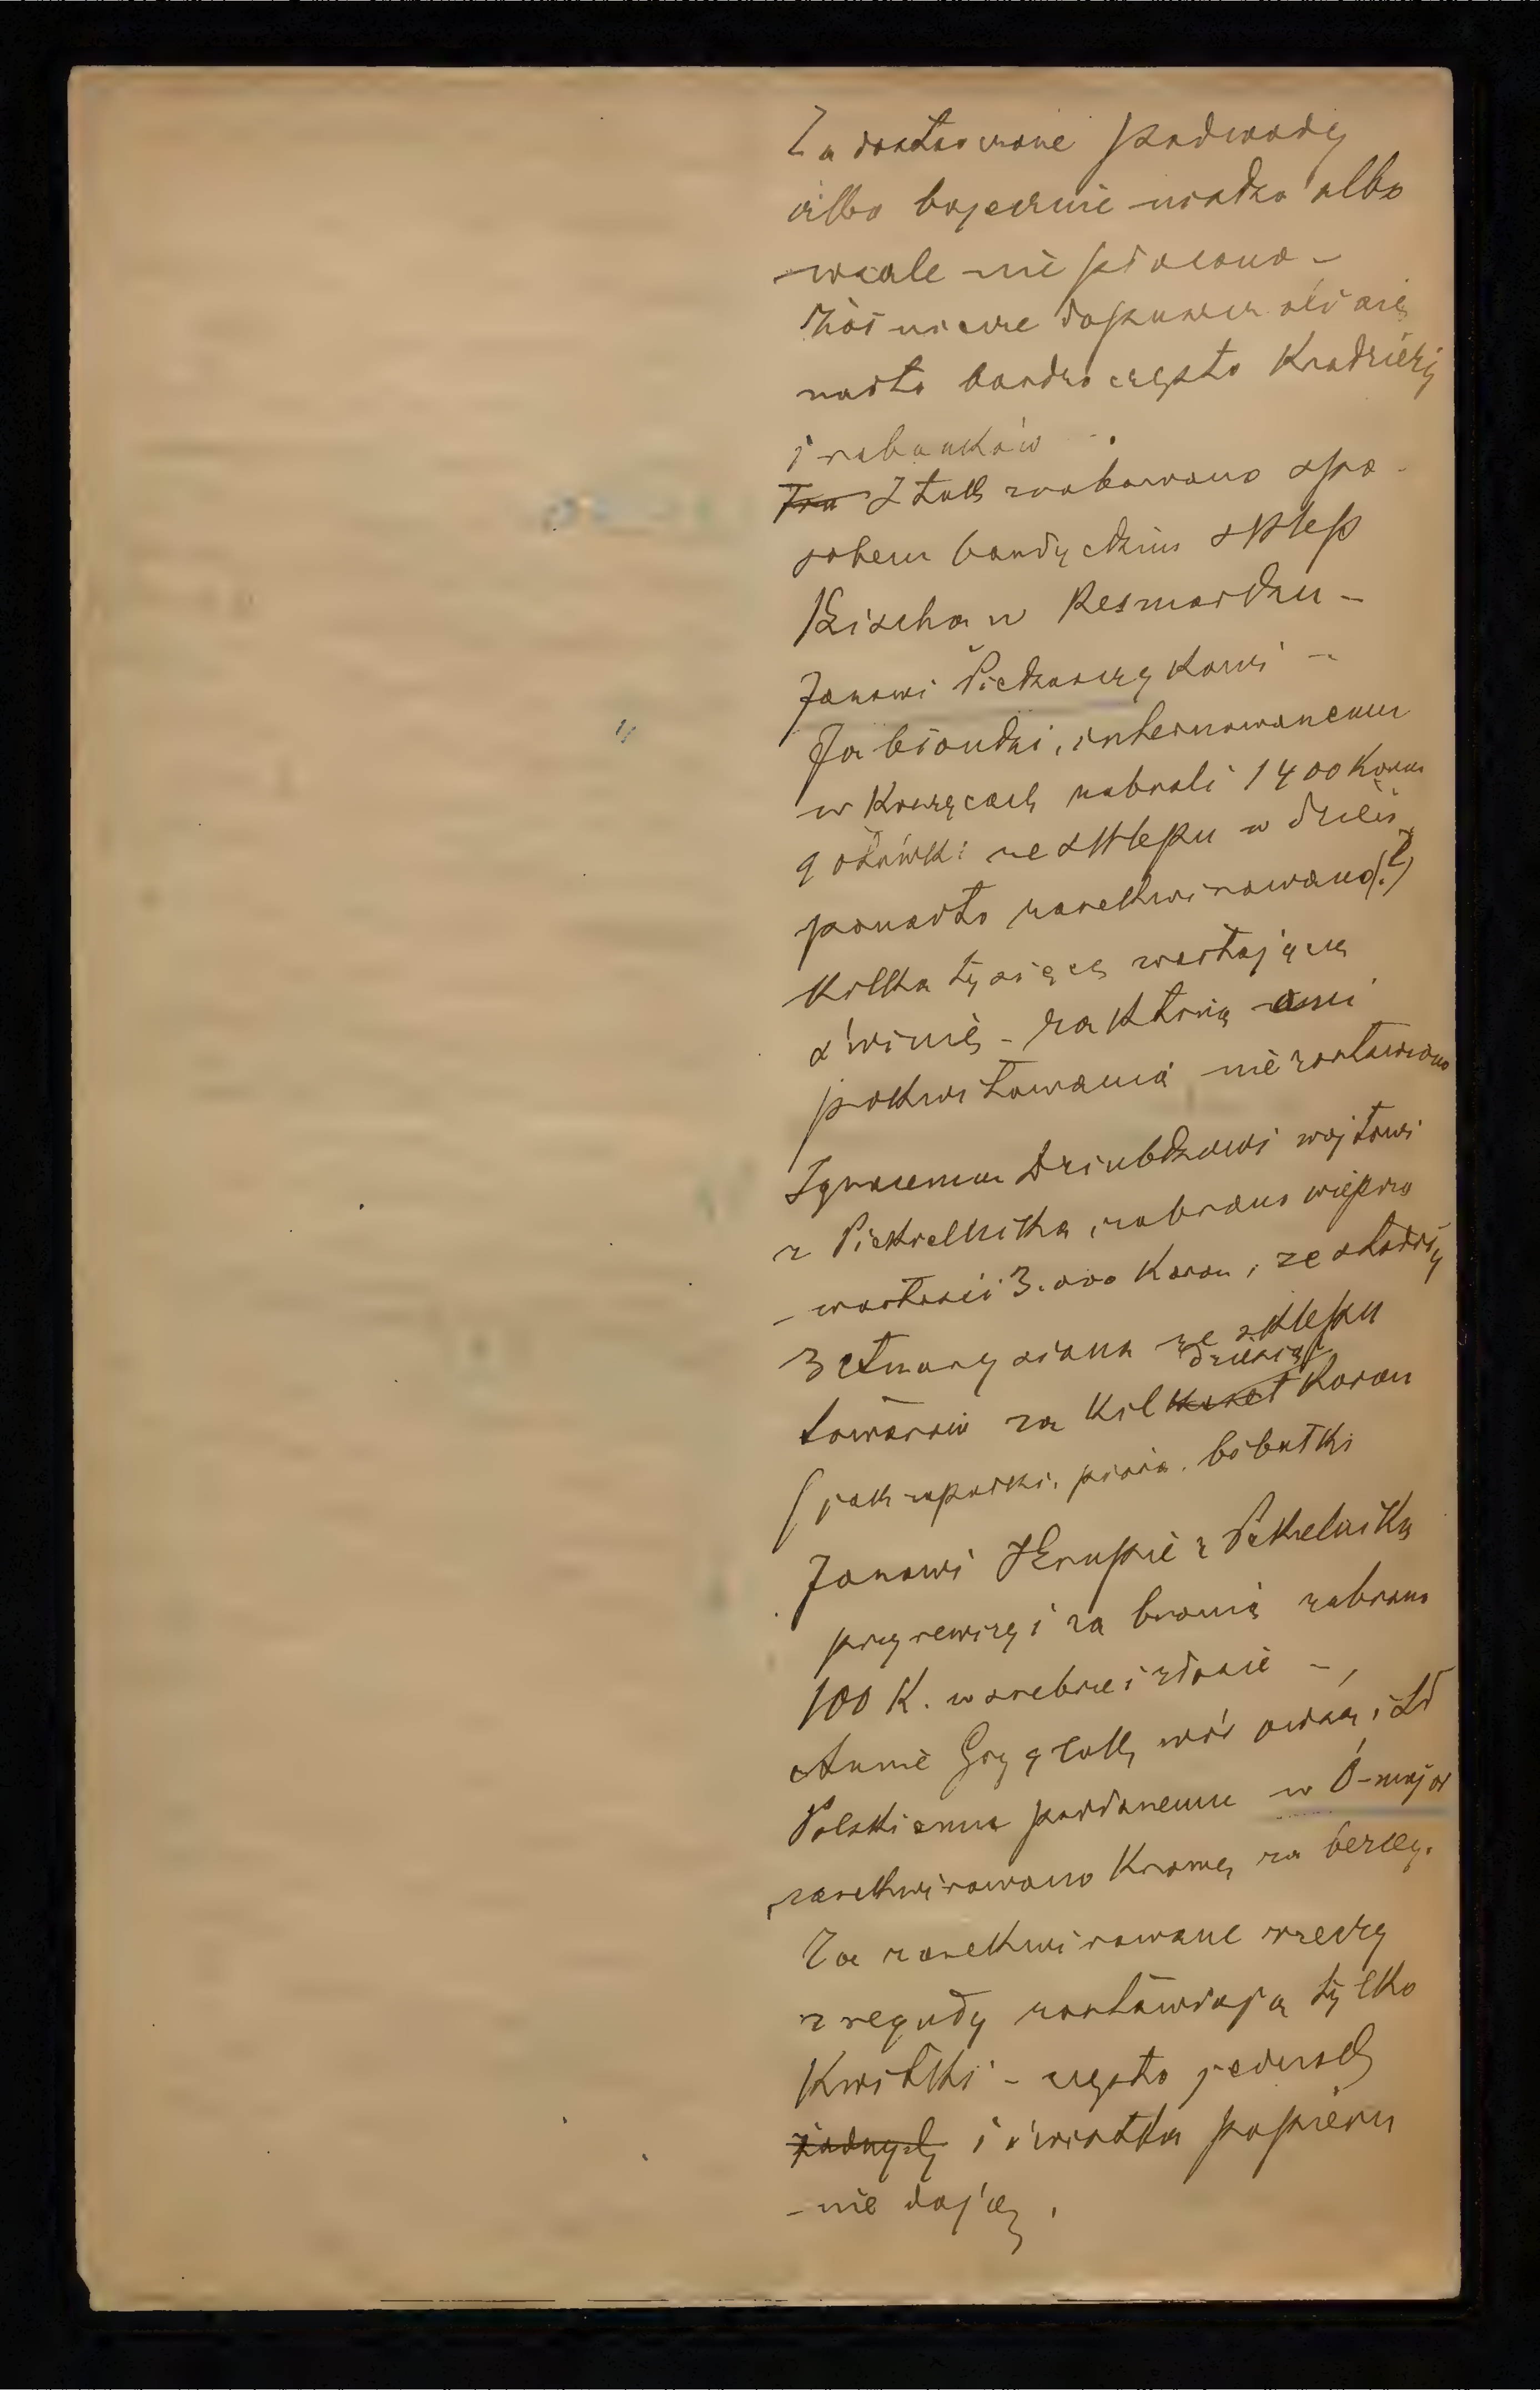 Za dostawione podwody
albo bajecznie rzadko albo
wcale nie płacono –
Żołnierze dopuszczali się
nadto bardzo często kradzieży
i rabunków
Tra I tak zrabowano spo-
sobem bandyckim sklep
Kischa w Kesmarku –
Janowi Piekarczykowi –
Jabłonki, internowanemu
w Koszycach zabrali 1400 Koron
gotówki ze sklepu w dzień,
ponadto zarekwirowano (?)
kilka tysięcy wartającą
świnię – za którą ani
pokwitowania nie zostawiono
Ignacemu Dziubkowi wójtowi
z Piekielnika, zabrano wieprza
wartości 3.000 Koron, ze stodoły
3 etmary siana ze sklepu
dziesiąt
towarów za kilkuset Koron
(jak zapałki, pióra, bibułki
Janowi Krupie z Piekielnika
przy rewizyi za bronią zabrano
100 K. w srebrze i złocie –,
Annie Gryglak, wór owsa, i Ld
Polskiemu poddanemu w Ó-major
zarekwirowano Krowę za bezcen.
Za zarekwirowane rzeczy
z reguły zostawiają tylko
Kwitki – często jednak
żadnych i świstka papieru
nie dając,